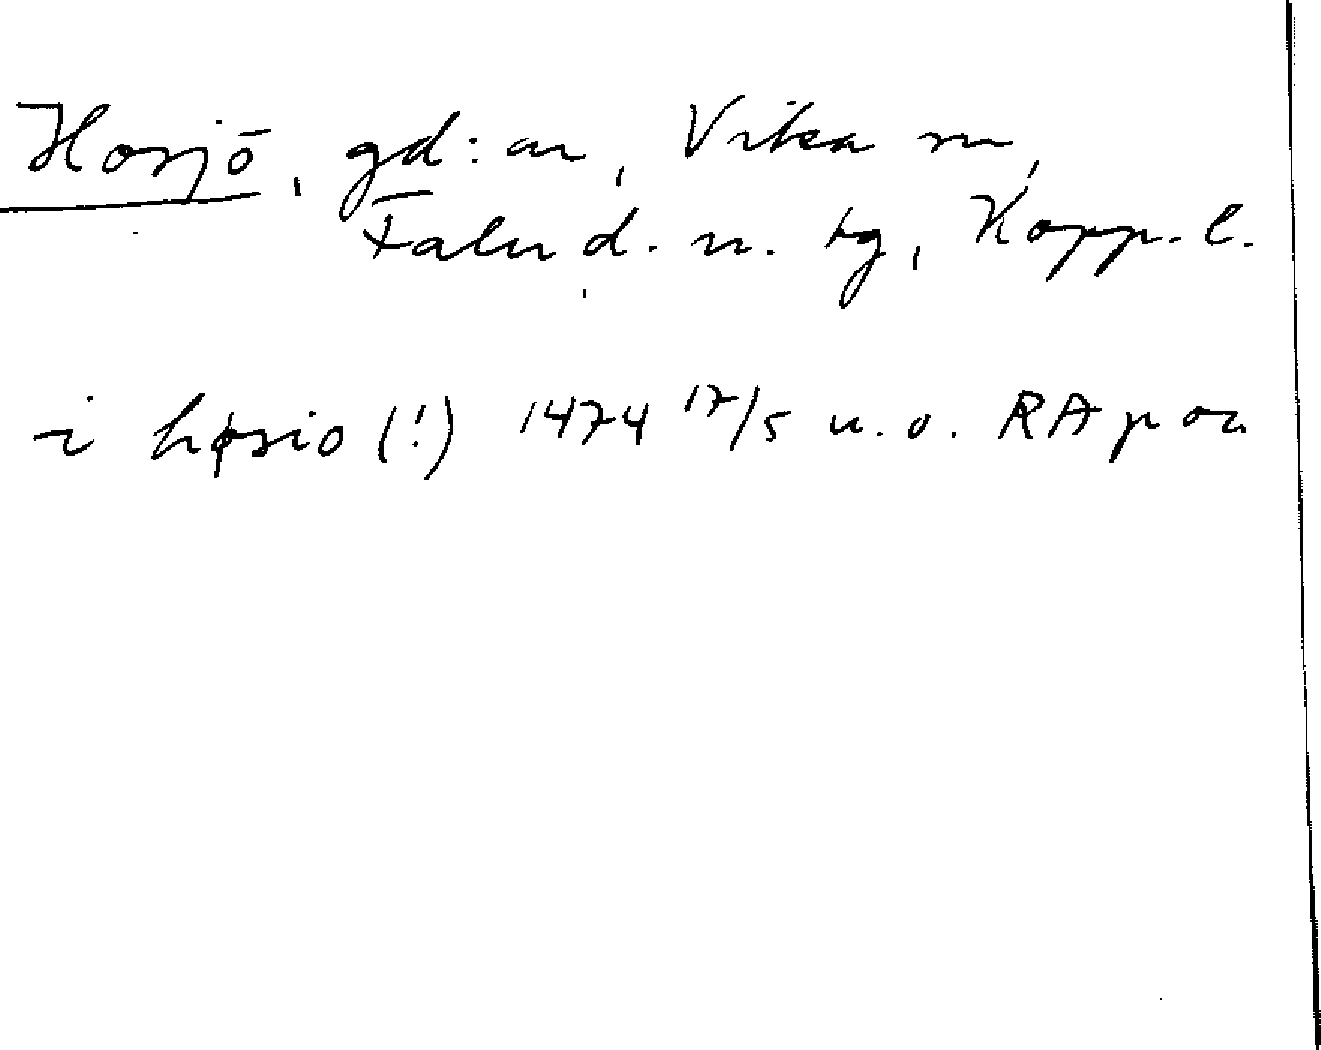 Hosjö, gd:ar, Vika sn,
Falu d. n. tg, Kopp. l.
i høsio (!) 1474 17/5 u. o. RAp or.